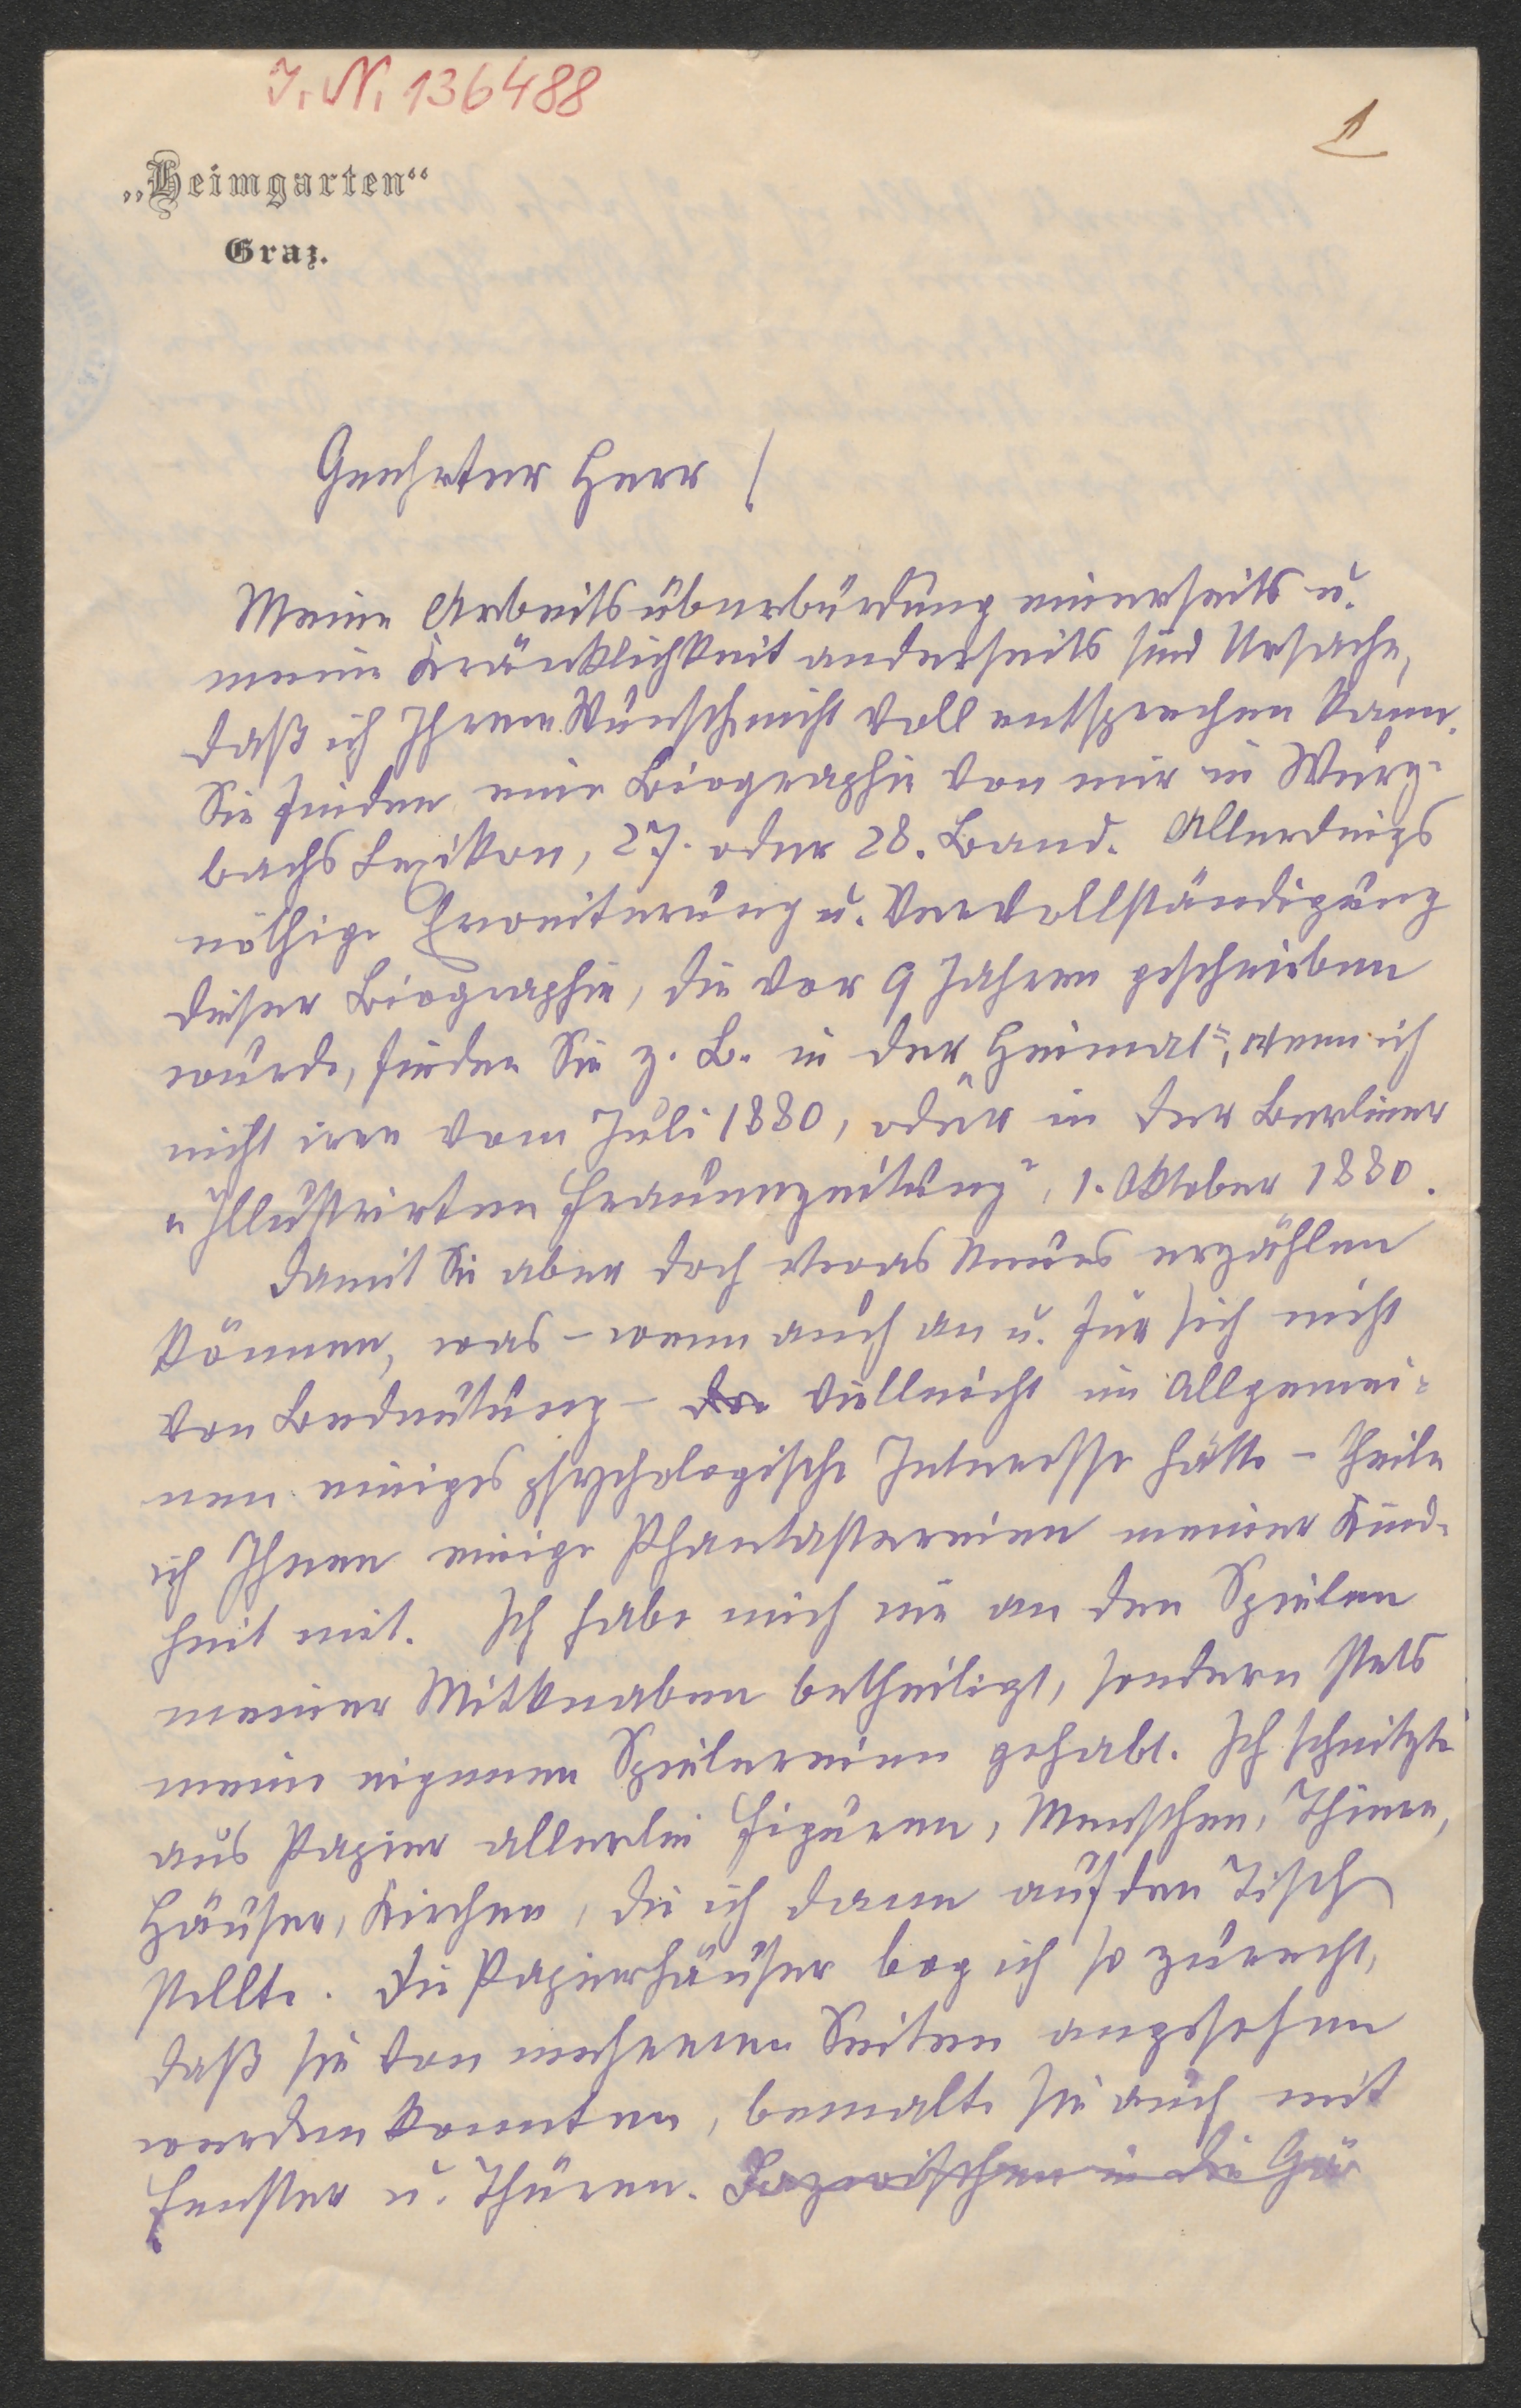 J. N. 136488
1
„Heimgarten“
Graz.
Geehrter Herr!
Meine Arbeitsüberbürdung einerseits u.
meine Kränklichkeit anderseits sind Ursache,
daß ich Ihrem Wunsch nicht voll entsprechen kann.
Sie finden eine Biographie von mir in Wurz-
bachs Lexikon, 27. oder 28. Band. Allerdings
nöthige Erweiterung u. Vervollständigung
dieser Biographie, die vor 9 Jahren geschrieben
wurde, finden Sie z. B. in der „Heimat“, wenn ich
nicht irre vom Juli 1880, oder in der Berliner
„Illustrirten Frauenzeitung“, 1. Oktober 1880.
Damit Sie aber doch etwas Neues erzählen
können, was – wenn auch an u. für sich nicht
von Bedeutung – vielleicht im Allgemei-
nen einiges psychologische Interesse hätte – theile
ich Ihnen einige Phantastereien meiner Kind-
heit mit. Ich habe mich nie an den Spielen
meiner Mitknaben betheiligt, sondern stets
meine eigenen Spielereien gehabt. Ich schnitzte
aus Papier allerlei Figuren, Menschen, Thiere,
Häuser, Kirchen, die ich dann auf den Tisch
stellte. Die Papierhäuser bog ich so zurecht,
daß sie von mehreren Seiten angesehen
werden konnten, bemalte sie auch mit
Fenster u. Thüren. Dazwischen in die Gä